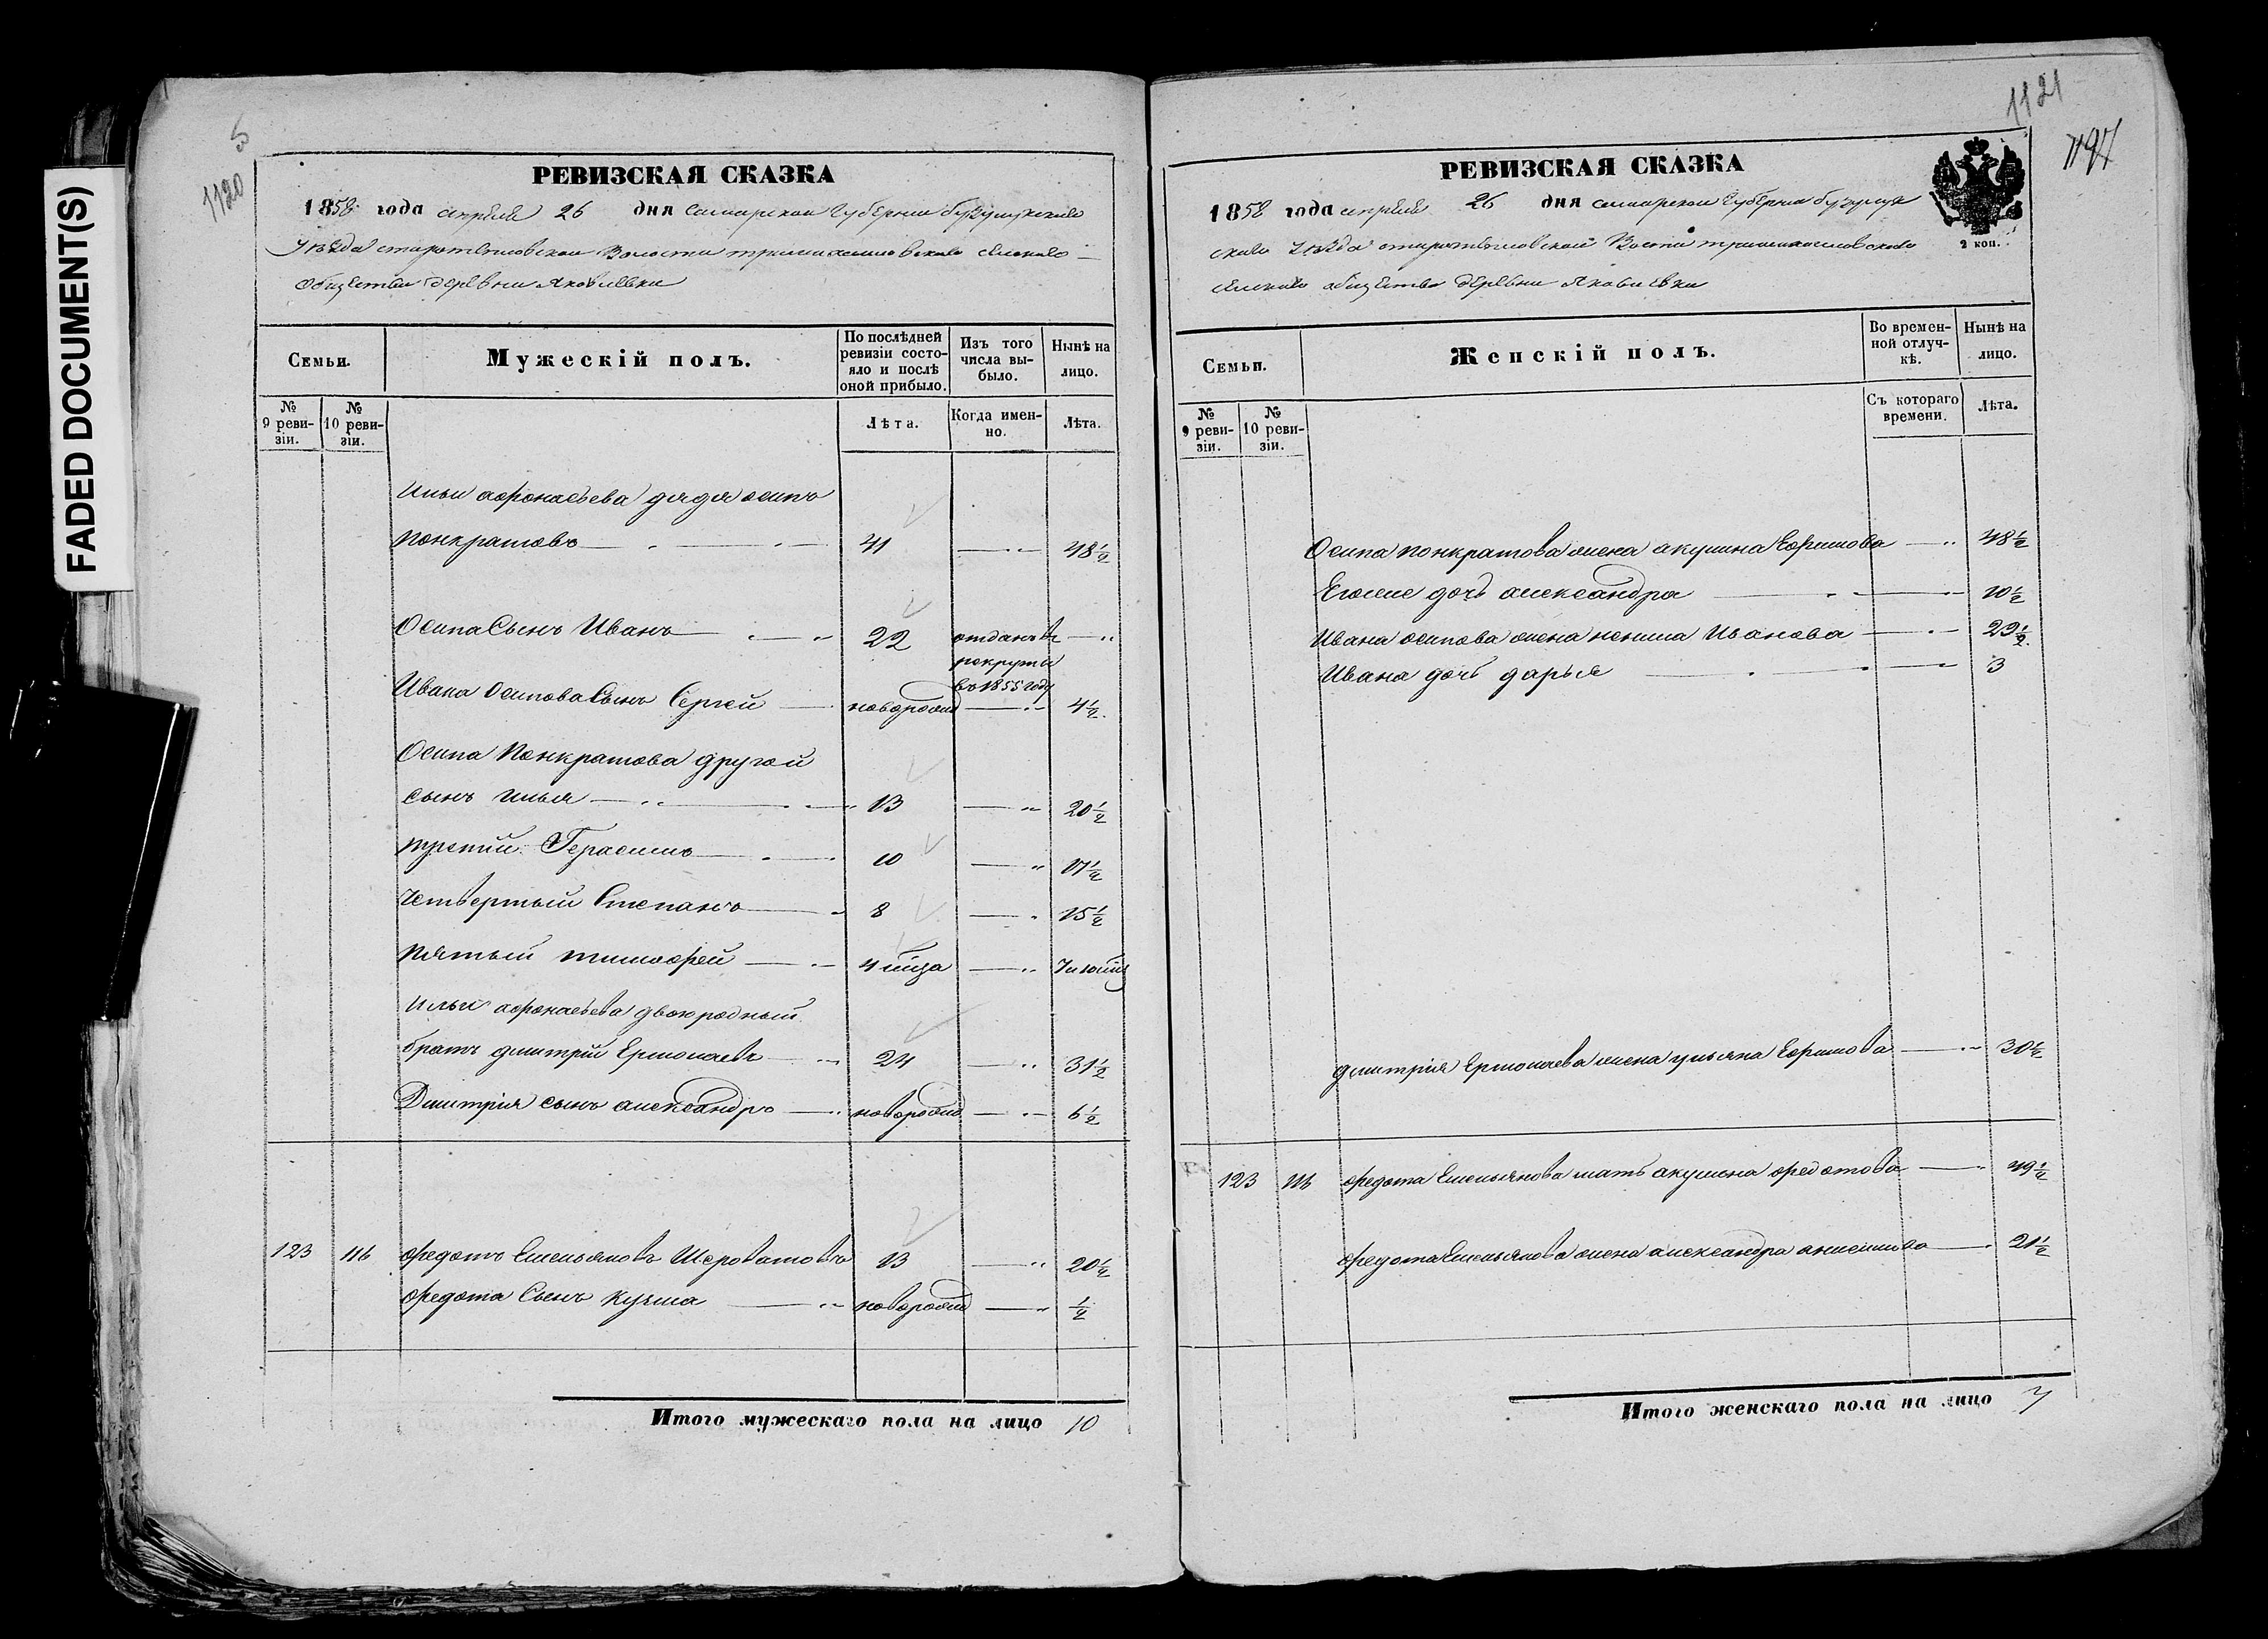 FADED DOCUMENT(S)
5
1120
РЕВИЗСКАЯ СКАЗКА
1858 года апреля 26 дня самарской губернии бузулукского
уезда старотепловской Волости селского
общества деревни Яковлевки
Семьи.
Мужескій полъ.
По послѣдней ревизіи состояло и послѣ оной прибыло.
Изъ того числа выбыло.
Нынѣ на лицо.
№ 9 ревизіи.
№ 10 ревизіи.
Лѣта.
Когда именно.
Лѣта.
Ильи афонасьева дядя осипъ
понкратовъ 41 48½
Осипа Сынъ Иванъ 22 отданъ въ
рекруты
въ 1855 году
Ивана осипова Сынъ Сергей новорожд 4½
Осипа Понкратова другой
сынъ илья 13 20½
третий Герасимъ 10 17½
четвертый Степанъ 8 15½
пятый тимофей 4 мца
Ильи афонасьева двоюродный
братъ дмитрій Ермолаевъ 24 31½
Дмитрія сынъ александръ новорожд 6½
123 116 федотъ Емельяновъ Шероватовъ 13 20½
федота Сынъ кузма новорожд ½
Итого мужескаго пола на лицо 10
1121
РЕВИЗСКАЯ СКАЗКА
1858 года апреля 26 дня самарской губернии бузулук
скаго уезда старотепловской
селскаго общества деревни Яковлевки
2 коп.
Семьи.
Женскій полъ.
Во временной отлучкѣ.
Нынѣ на лицо.
№ 9 ревизіи.
№ 10 ревизіи.
Съ котораго времени.
Лѣта.
Осипа понкратова жена акулина Ефимова 48½
Егоже дочь александра 10½
Ивана осипова жена ненила Иванова 29½
Ивана дочь дарья 3
дмитрія Ермолаева жена ульяна Ефимова 30½
123 116 федота Емельянова мать акулина федотова 49½
федота Емельянова жена александра анисимова 21½
Итого женскаго пола на лицо 7